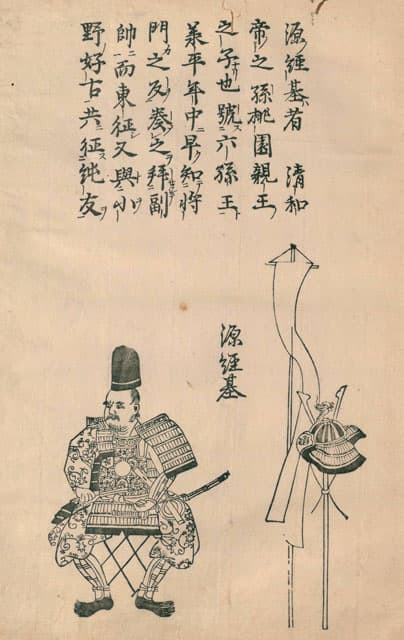 源經基者　清和
帝之孫桃園親王
之子也號六孫王
承平年中早知将
門之反奏之拝副
帥而東征又與小
野好古共征純友
源經基